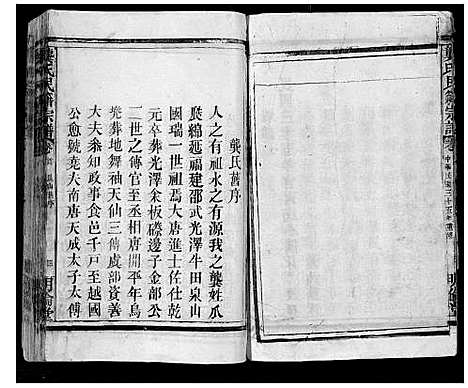 龔氏舊序
人之有祖水之有源我之龔姓瓜
瓞綿延福建邵武光澤牛田泉山
國瑞一世祖焉大唐進士佐仕乾
元卒葬光澤余板磜邊子金部公
二世之傳官至中唐開平年烏
堯葬地舞袖天仙三傳虞部資善
大夫叅知政事食邑千戸至越國
公愈號堯夫南唐天成太子太傅
龔氏民
宗譜
舊序
明倫堂
龔氏民
宗譜
中華民國三十五年